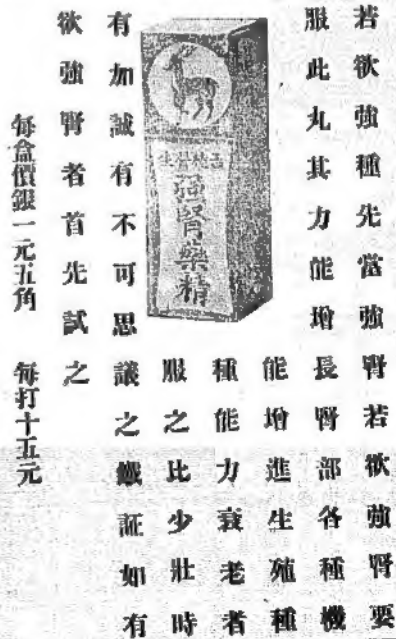 若欲強種先當強腎若欲強腎要
服此丸其力能增長腎部各種機
能增進生殖種
種能力衰老者
服之比少壯時
有加誠有不可思議之鐵証如有
欲強腎者首先試之
每盒價銀一元五角 每打十五元
强腎藥精